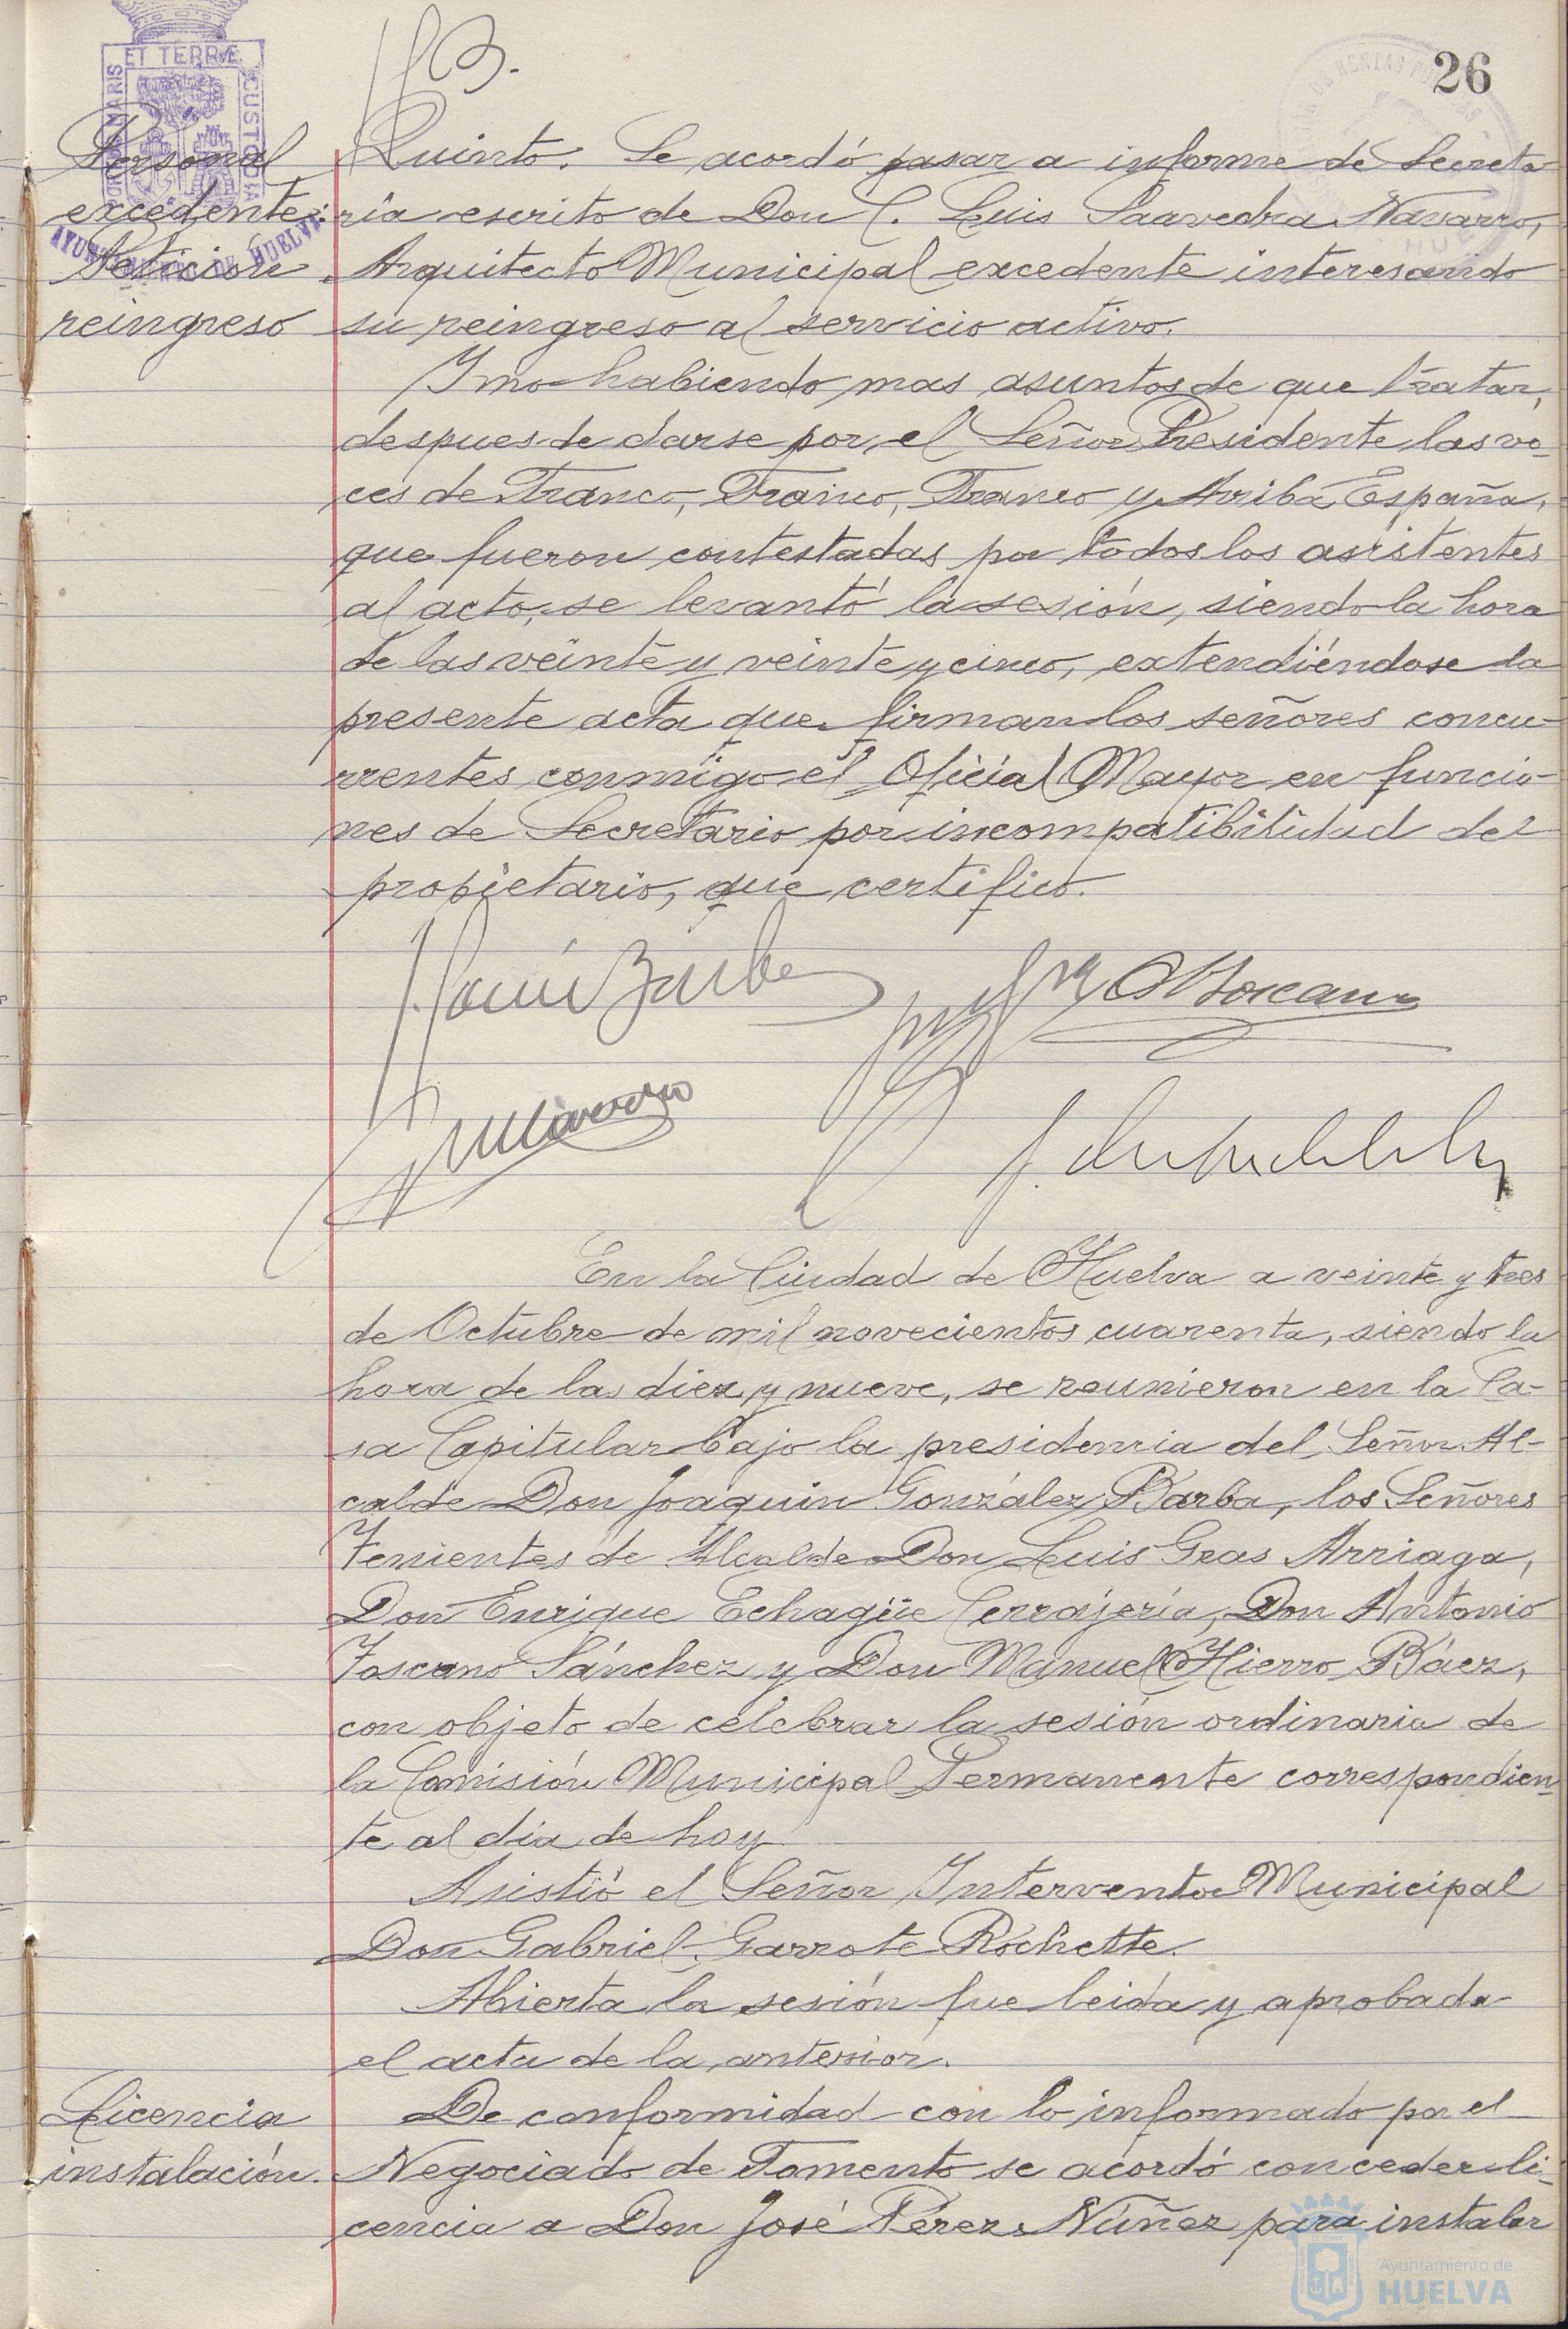 26
Personal
excedente:
Petición
reingreso
Quinto. Se acordó pasar a informe de Secreta-
ría escrito de Don C. Luis Saavedra Navarro,
Arquitecto Municipal excedente interesando
su reingreso al servicio activo.
Y no habiendo mas asuntos de que tratar,
despues de darse por el Señor Presidente las vo-
ces de Franco, Franco, Franco y Arriba España,
que fueron contestadas por todos los asistentes
al acto, se levantó la sesión, siendo la hora
de las veinte y veinte y cinco, extendiéndose la
presente acta que firman los señores concu-
rrentes conmigo el Oficial Mayor en funcio-
nes de Secretario por incompatibilidad del
propietario, que certifico.
En la Ciudad de Huelva a veinte y tres
de Octubre de mil novecientos cuarenta, siendo la
hora de las diez y nueve, se reunieron en la Ca-
sa Capitular bajo la presidencia del Señor Al-
calde Don Joaquin González Barba, los Señores
Tenientes de Alcalde Don Luis Gras Arriaga,
Don Enrique Echagüe Cerrajería, Don Antonio
Toscano Sánchez y Don Manuel Hierro Báez,
con objeto de celebrar la sesión ordinaria de
la Comisión Municipal Permanente correspondien-
te al día de hoy
Asistió el Señor Interventor Municipal
Don Gabriel Garrote Rochette.
Abierta la sesión fue leida y aprobada
el acta de la anterior.
Licencia
instalación.
De conformidad con lo informado por el
Negociado de Fomento se acordó conceder li-
cencia a Don José Pérez Núñez para instalar
Ayuntamiento de
HUELVA